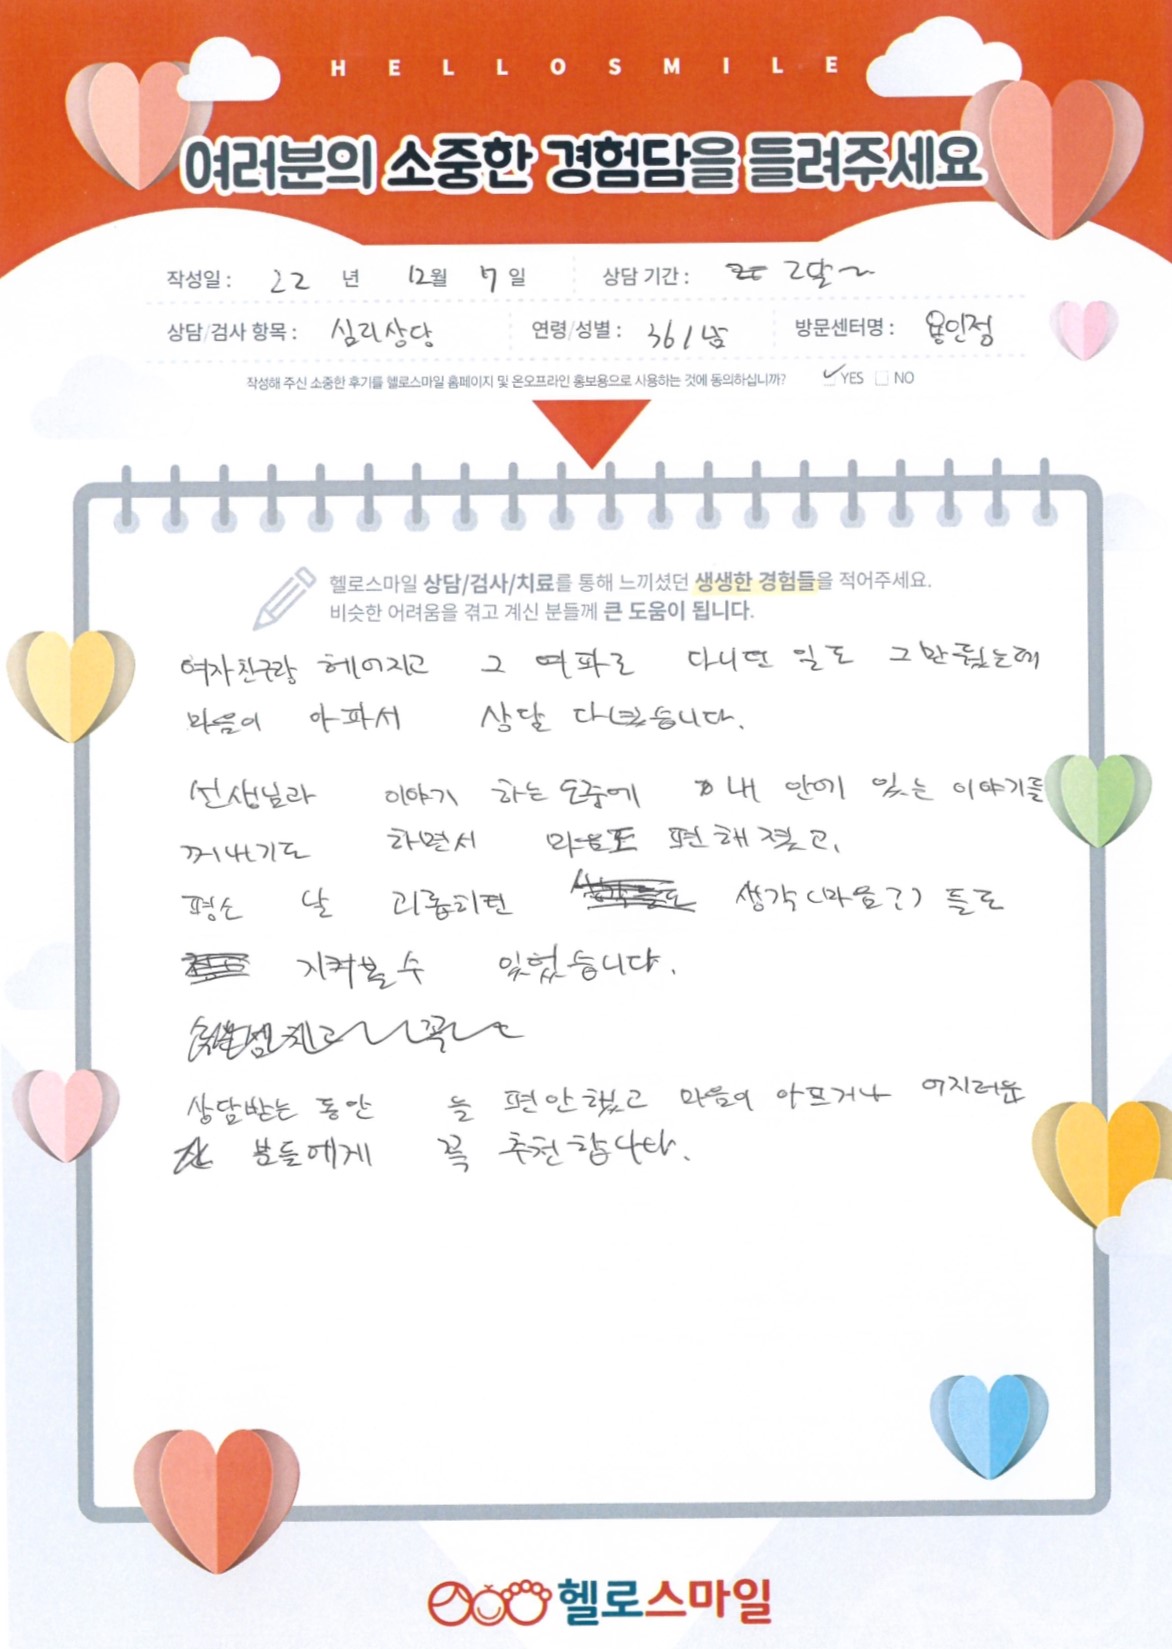 HELLOSMILE
여러분의 소중한 경험담을 들려주세요
작성일 : 22 년 12월 7일 상담 기간 : 2달~
상담/검사 항목 : 심리상담 연령/성별 : 36/남 방문센터명 : 용인점
작성해 주신 소중한 후기를 헬로스마일 홈페이지 및 온오프라인 홍보용으로 사용하는 것에 동의하십니까? YES NO
헬로스마일 상담/검사/치료를 통해 느끼셨던 생생한 경험들을 적어주세요.
비슷한 어려움을 겪고 계신 분들께 큰 도움이 됩니다.
여자친구랑 헤어지고 그 여파로 다니던 일도 그만뒀는데
마음이 아파서 상담 다녔습니다.
선생님과 이야기 하는 도중에 내 안에 있는 이야기를
꺼내기도 하면서 마음도 편해졌고,
평소 날 괴롭히던 생각(마음?)들도
지켜볼 수 있었습니다.
상담받는 동안 늘 편안했고 마음이 아프거나 어지러운
분들에게 꼭 추천합니다.
헬로스마일